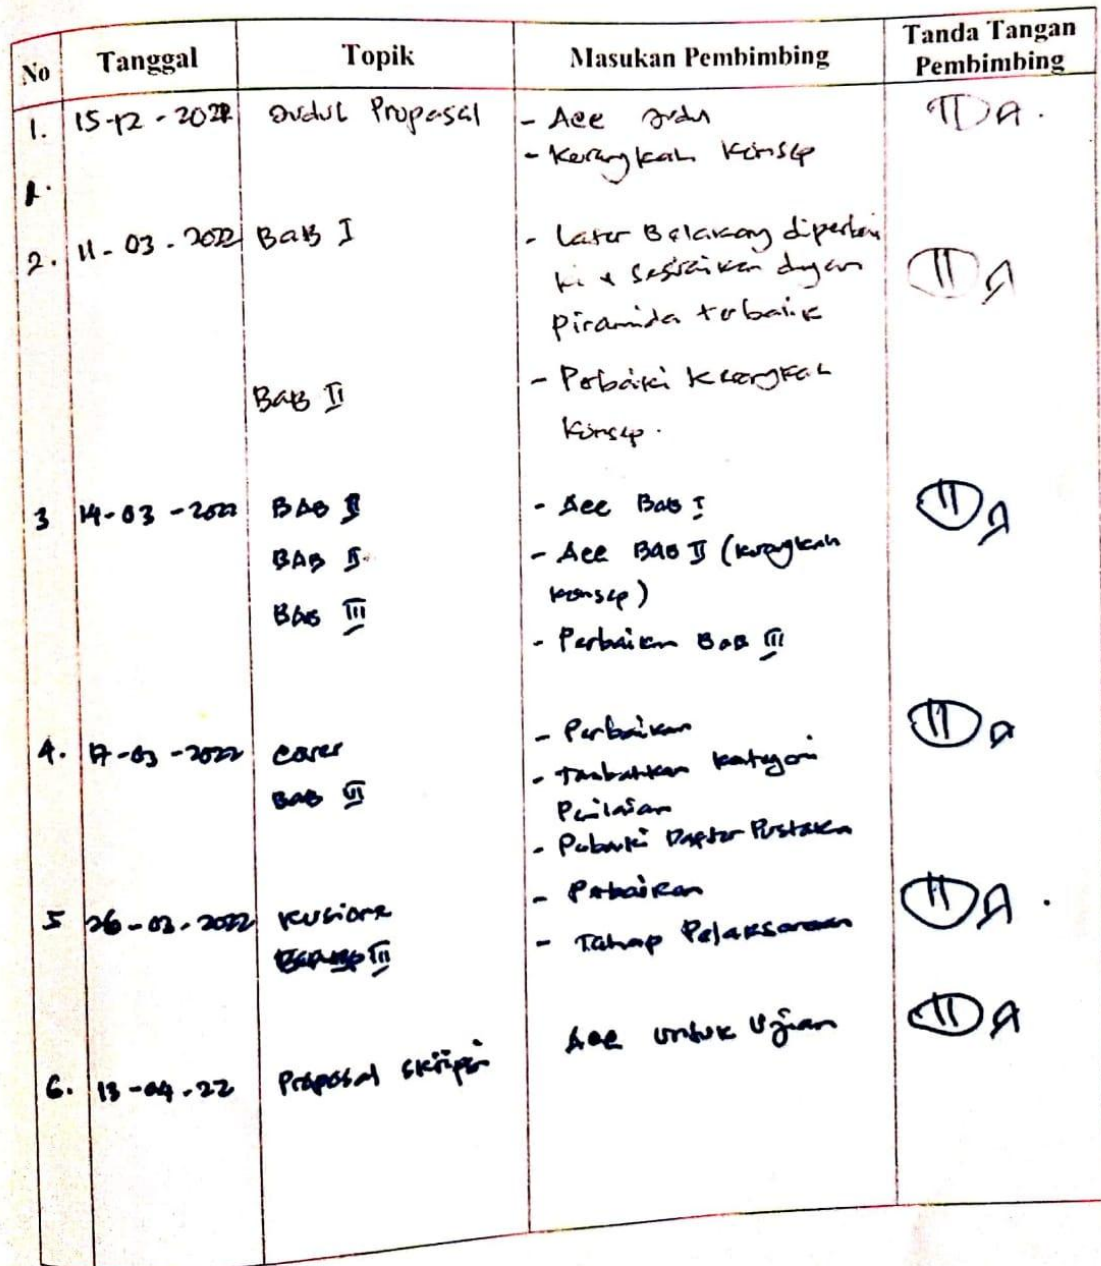 No Tanggal Topik Masukan Pembimbing Tanda Tangan Pembimbing
1. 15-12-2021 Judul Proposal - Acc Judul
- Kerangkah Konsep
2. 11-03-2022 BAB I - Latar Belakang diperbai
ki + Sesuaikan dengan
Piramida terbalik
BAB II - Perbaiki Kerangkah
Konsep.
3 14-03-2022 BAB I - Acc BAB I
BAB II - Acc BAB II (kerangkah
konsep)
BAB III - Perbaikan BAB III
4. 17-03-2022 Cover - Perbaikan
BAB - Tambahkan kategori
Penilaian
- Perbaiki Daptar Pustaka
5 26-03-2022 Kusione - Perbaikan
III - Tahap Pelaksanaan
6. 13-04-22 Proposal Skripsi Acc untuk Ujian